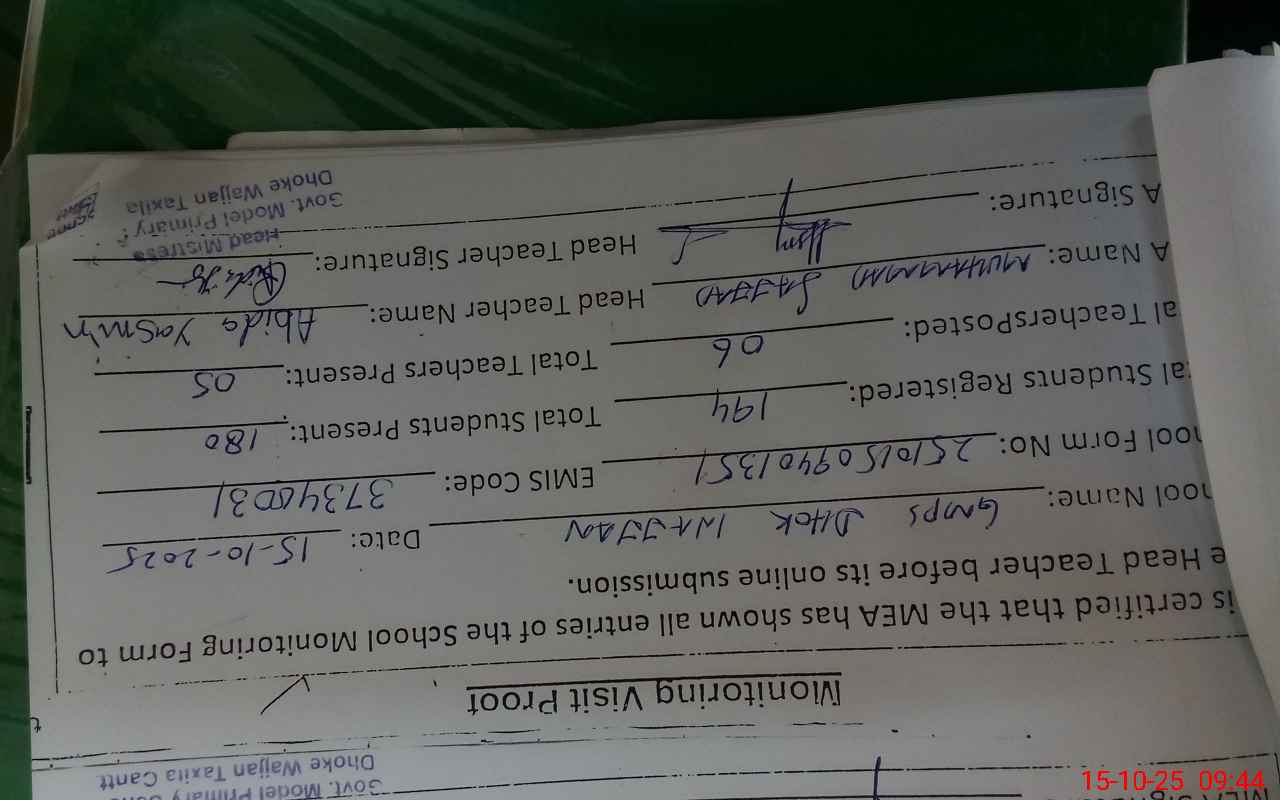 Govt. Model Primary
Dhoke Wajjan Taxila Cantt
Monitoring Visit Proof
is certified that the MEA has shown all entries of the School Monitoring Form to
e Head Teacher before its online submission.
ool Name: GMPS DHOK WAJJAN Date: 15-10-2025
ool Form No: 25101509401351 EMIS Code: 37340031
al Students Registered: 194 Total Students Present: 180
al TeachersPosted: 06 Total Teachers Present: 05
A Name: MUHAMMAD SAJJAD Head Teacher Name: Abida Yasmin
A Signature: Head Teacher Signature:
Head Mistress
Govt. Model Primary
Dhoke Wajjan Taxila
15-10-25 09:44